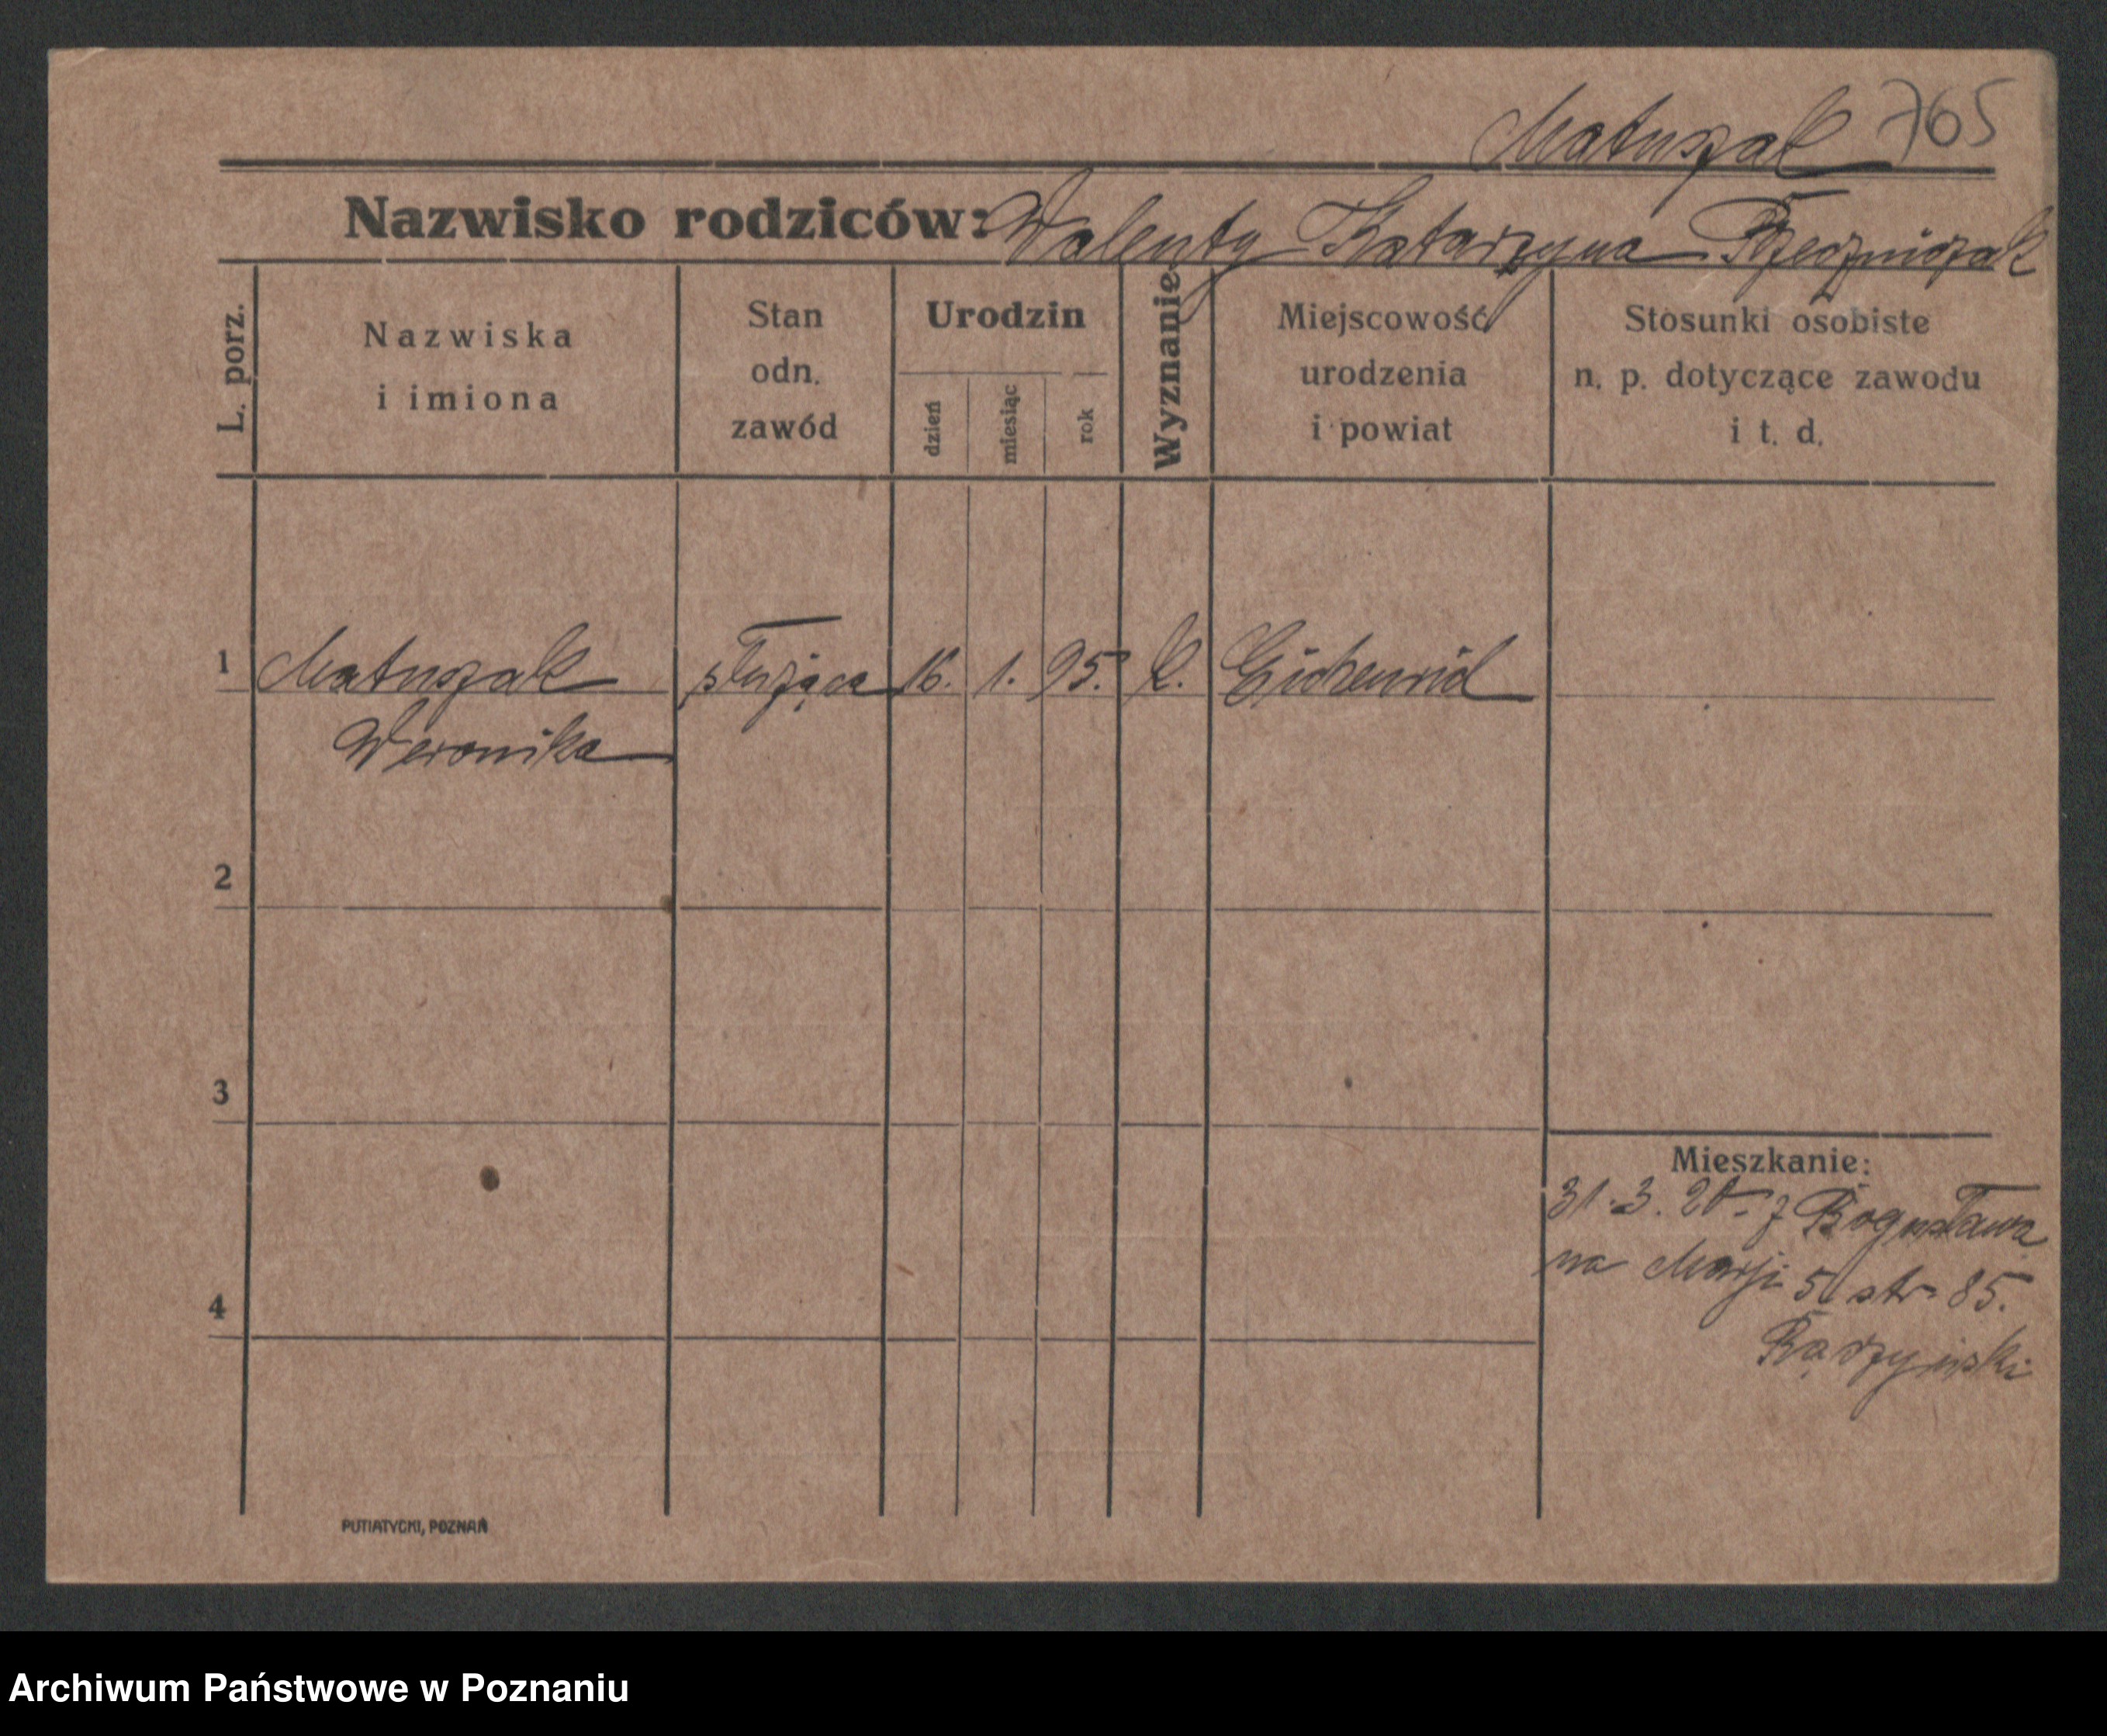 Matuszak 765
Nazwisko rodziców: Walenty Katarzyna
L. porz.
Nazwiska
i imiona
Stan
odn.
zawód
Urodzin
dzień
miesiąc
rok
Wyznanie
Miejscowość
urodzenia
i powiat
Stosunki osobiste
n. p. dotyczące zawodu
i t. d.
1 Matuszak służąca 16. 1. 95. k.
Weronika
2
3
4
Mieszkanie:
31. 3. 20. z Bogusława
na Marji 5 str. 85.
PUTIATYCKI, POZNAŃ
Archiwum Państwowe w Poznaniu